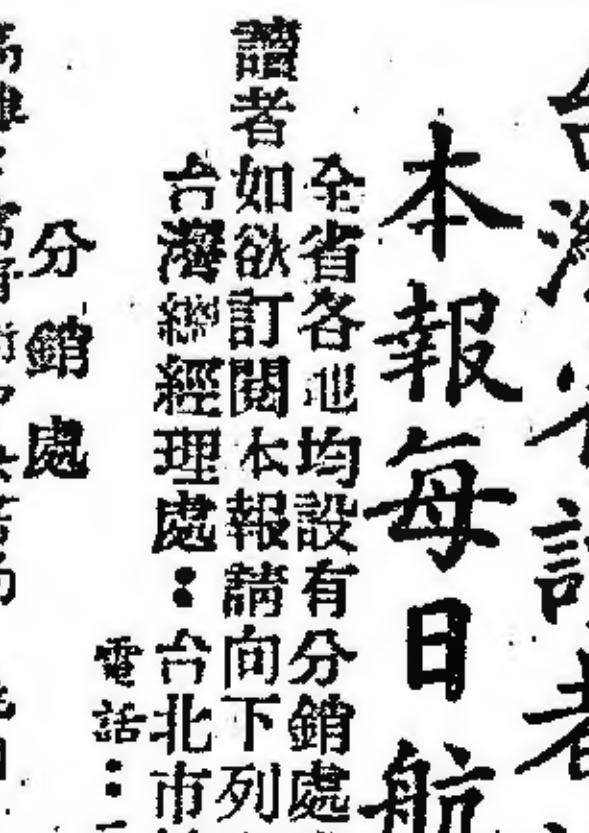 台灣省讀者
本報每日航
全省各地均設有分銷處
讀者如欲訂閱本報請向下列
台灣總經理處：台北市
電話：
分銷處